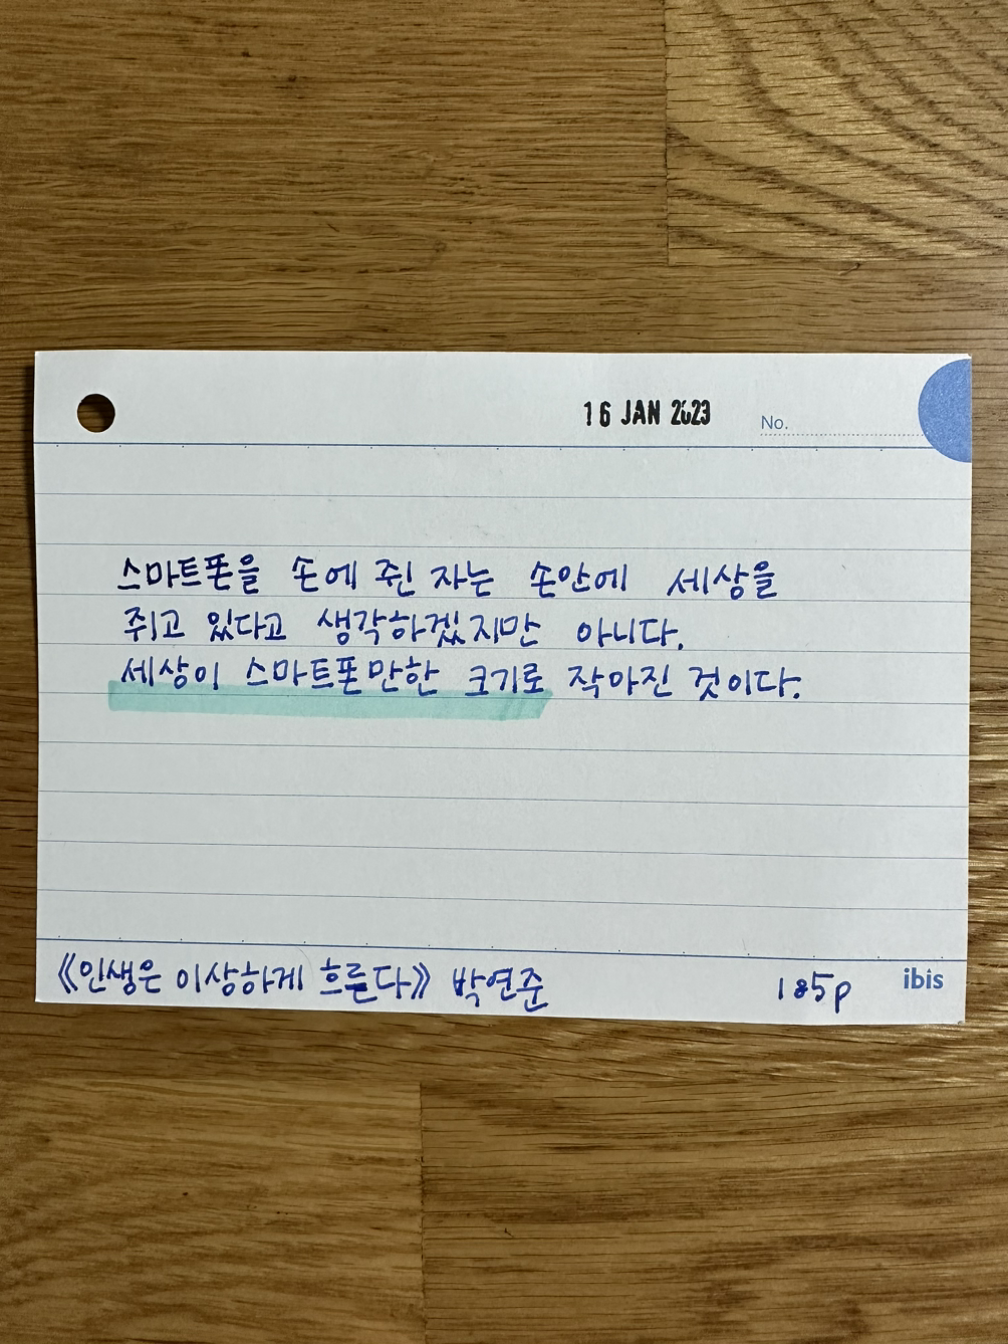 16 JAN 2023
No.
스마트폰을 손에 쥔 자는 손안에 세상을
쥐고 있다고 생각하겠지만 아니다.
세상이 스마트폰만한 크기로 작아진 것이다.
《인생은 이상하게 흐른다》 박연준 185p
ibis